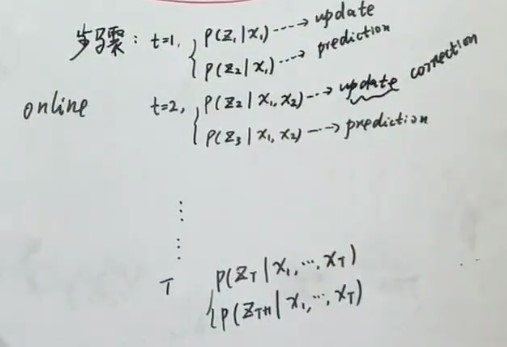 步骤: t=1, { P(Z₁|X₁) ----> update
P(Z₂|X₁) ---> prediction
online t=2, { P(Z₂|X₁,X₂) --> update correction
P(Z₃|X₁,X₂) ---> prediction
⋮
T { P(Z_T|X₁,⋯,X_T)
P(Z_{T+1}|X₁,⋯,X_T)